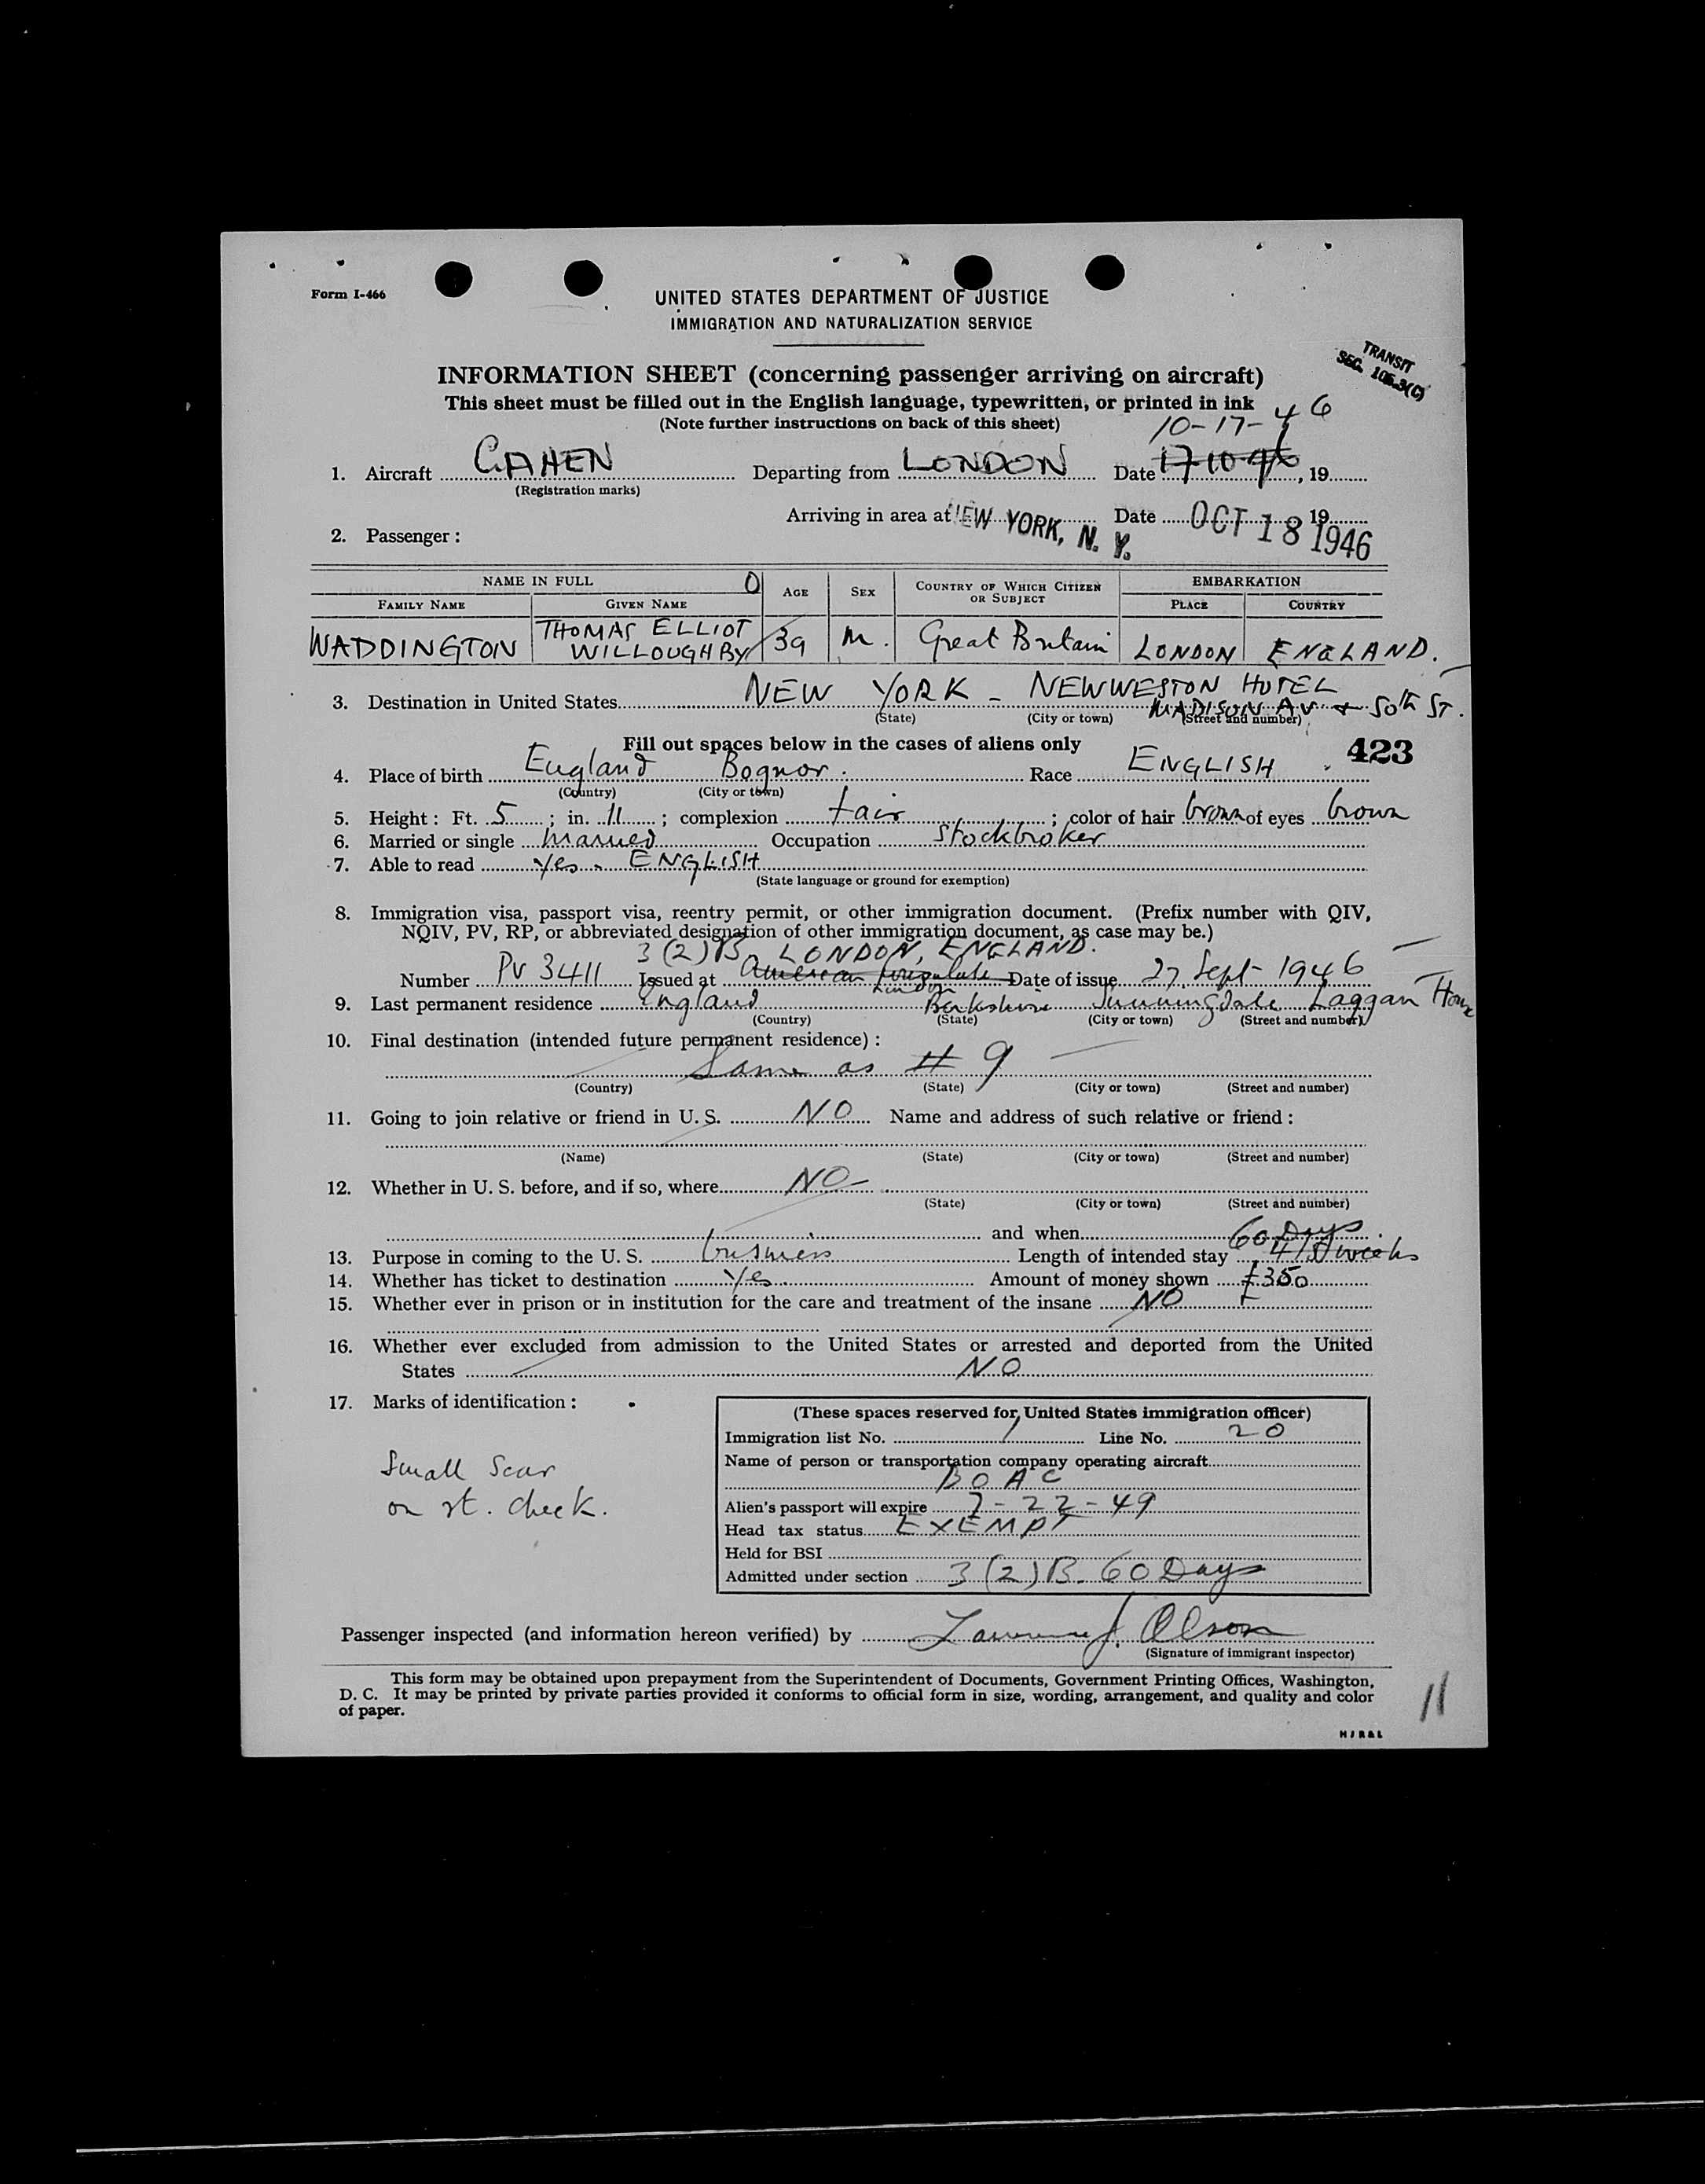 Form I-466
UNITED STATES DEPARTMENT OF JUSTICE
IMMIGRATION AND NATURALIZATION SERVICE
TRANSIT
SEC. 105.3(C)
INFORMATION SHEET (concerning passenger arriving on aircraft)
This sheet must be filled out in the English language, typewritten, or printed in ink
(Note further instructions on back of this sheet)
10-17-46
1. Aircraft GAHEN Departing from LONDON Date 17-10-46, 19
(Registration marks)
Arriving in area at NEW YORK, N. Y. Date OCT 18 1946 19
2. Passenger:
NAME IN FULL O AGE SEX COUNTRY OF WHICH CITIZEN OR SUBJECT EMBARKATION
FAMILY NAME GIVEN NAME PLACE COUNTRY
WADDINGTON THOMAS ELLIOT WILLOUGHBY 39 M. Great Britain LONDON ENGLAND.
3. Destination in United States NEW YORK - NEWWESTON HOTEL
MADISON AV + 50th ST.
(State) (City or town) (Street and number)
Fill out spaces below in the cases of aliens only
423
4. Place of birth England Bognor. Race ENGLISH
(Country) (City or town)
5. Height: Ft. 5; in. 11; complexion fair; color of hair brown of eyes brown
6. Married or single married Occupation Stockbroker
7. Able to read Yes - ENGLISH
(State language or ground for exemption)
8. Immigration visa, passport visa, reentry permit, or other immigration document. (Prefix number with QIV,
NQIV, PV, RP, or abbreviated designation of other immigration document, as case may be.)
3(2)B LONDON, ENGLAND.
Number PV 3411 Issued at American Consulate London Date of issue 27 Sept 1946
9. Last permanent residence England Berkshire Sunningdale Laggan House
(Country) (State) (City or town) (Street and number)
10. Final destination (intended future permanent residence):
Same as # 9
(Country) (State) (City or town) (Street and number)
11. Going to join relative or friend in U. S. NO Name and address of such relative or friend:
(Name) (State) (City or town) (Street and number)
12. Whether in U. S. before, and if so, where NO
(State) (City or town) (Street and number)
and when
60 Days
13. Purpose in coming to the U. S. business Length of intended stay weeks
14. Whether has ticket to destination Yes Amount of money shown £350
15. Whether ever in prison or in institution for the care and treatment of the insane NO
16. Whether ever excluded from admission to the United States or arrested and deported from the United
States NO
17. Marks of identification:
Small Scar
on rt. cheek.
(These spaces reserved for United States immigration officer)
Immigration list No. 1 Line No. 20
Name of person or transportation company operating aircraft
BOAC
Alien's passport will expire 7-22-49
Head tax status EXEMPT
Held for BSI
Admitted under section 3(2)B. 60 Days
Passenger inspected (and information hereon verified) by Lawrence J. Olson
(Signature of immigrant inspector)
This form may be obtained upon prepayment from the Superintendent of Documents, Government Printing Offices, Washington,
D. C. It may be printed by private parties provided it conforms to official form in size, wording, arrangement, and quality and color
of paper.
11